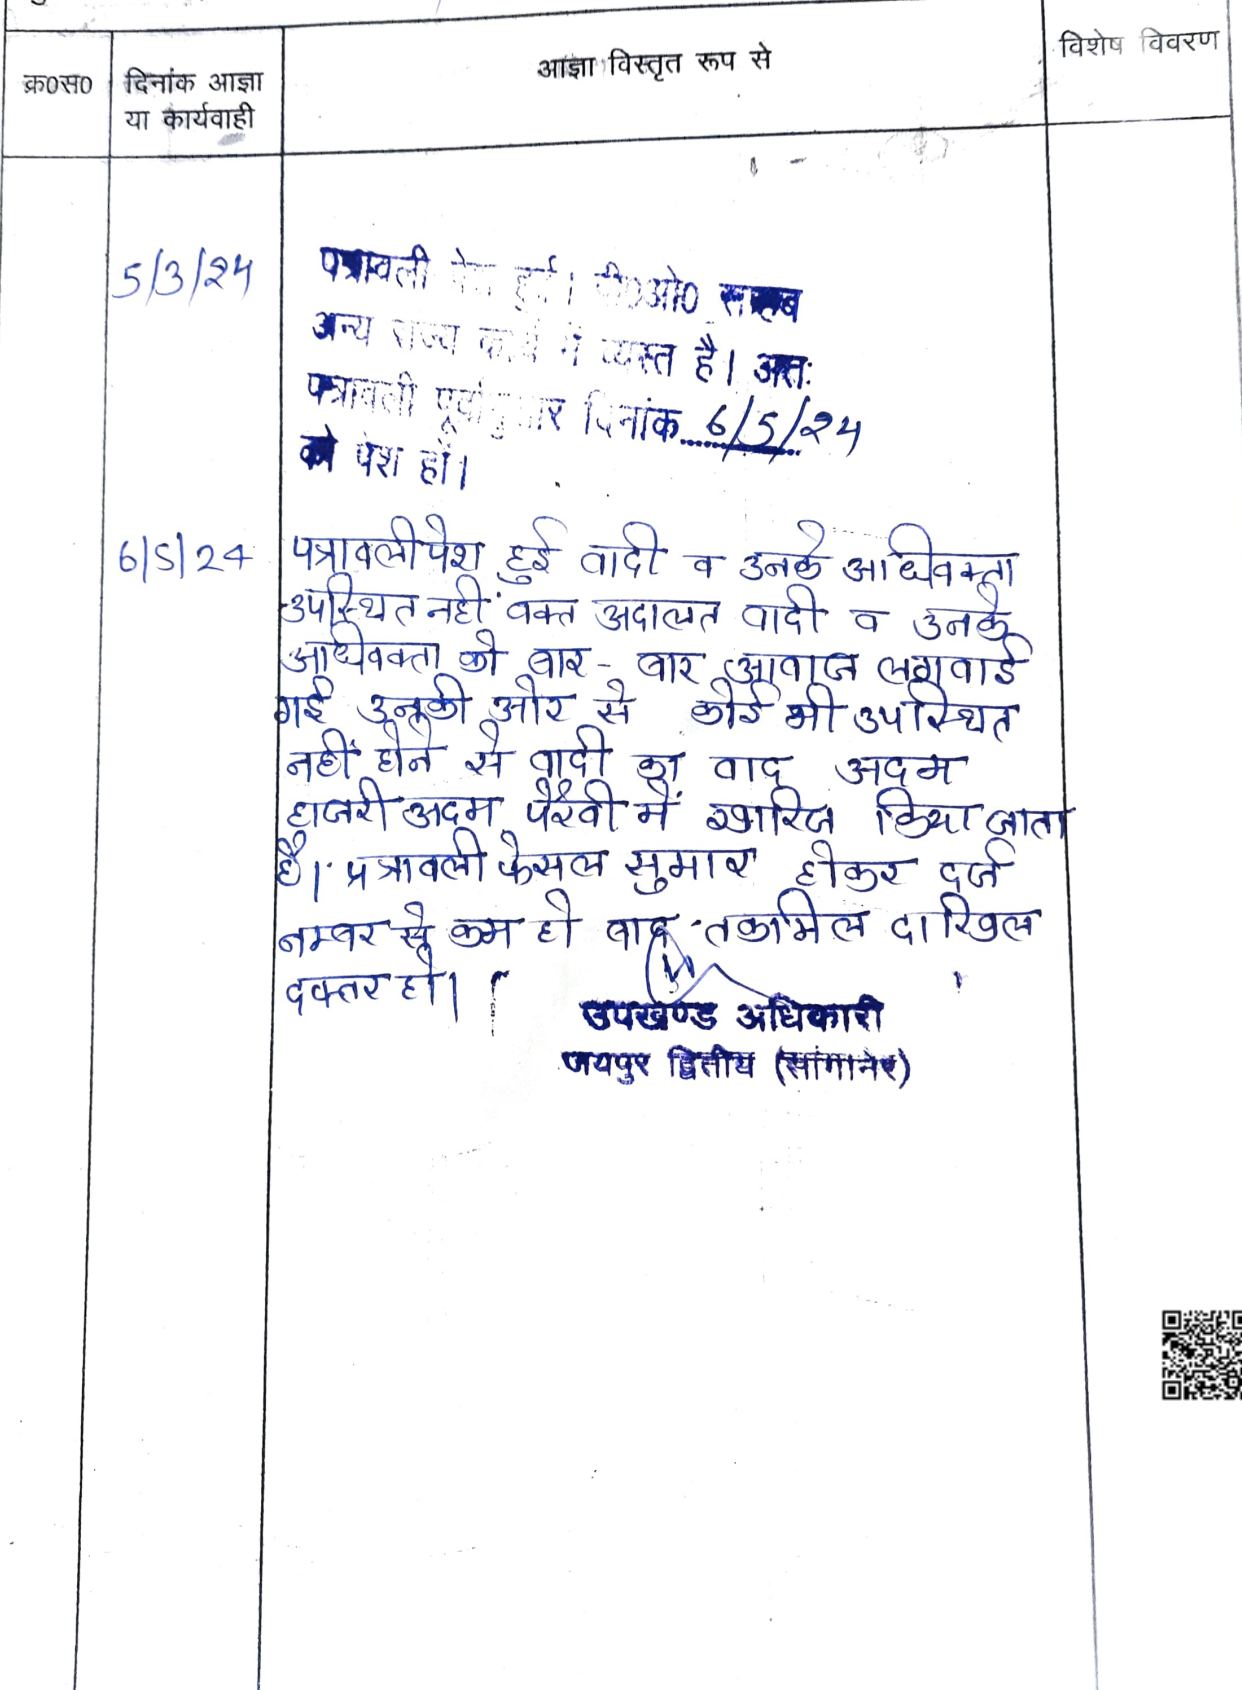 क्र0स0 दिनांक आज्ञा या कार्यवाही आज्ञा विस्तृत रूप से विशेष विवरण
5/3/24 पत्रावली पेश हुई। पी0ओ0 साहब
अन्य राज्य कार्य में व्यस्त है। अतः
पत्रावली पूर्वानुसार दिनांक 6/5/24
को पेश हों।
6/5/24 पत्रावली पेश हुई वादी व उनके अधिवक्ता
उपस्थित नहीं वक्त अदालत वादी व उनके
अधिवक्ता को बार-बार आवाज लगवाई
गई उनकी ओर से कोई भी उपस्थित
नहीं होने से वादी का वाद अदम
हाजरी अदम पैरवी में खारिज किया जाता
है। पत्रावली फेसल सुमार होकर दर्ज
नम्बर से कम हो बाद तकमिल दाखिल
दफ्तर हो।
उपखण्ड अधिकारी
जयपुर द्वितीय (सांगानेर)